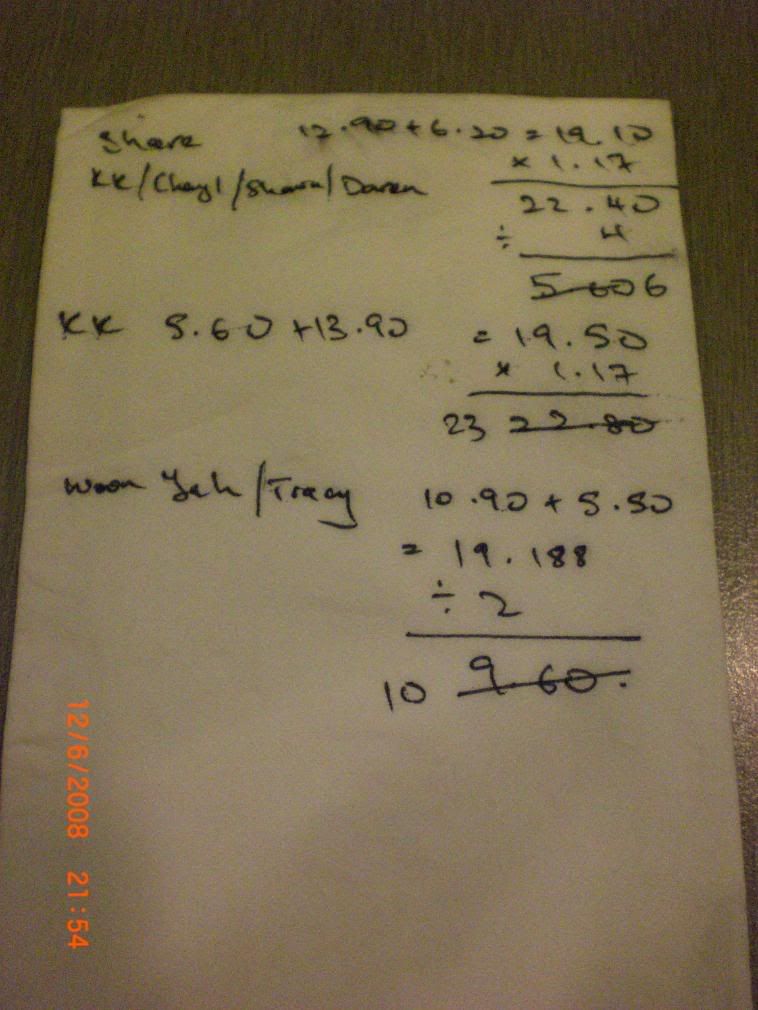 Share 12.90+6.20=19.10
× 1.17
KK/Cheryl/Shawn/Daren
22.40
÷ 4
5 60 6
KK 5.60+13.90 = 19.50
× 1.17
23 22.80
Woon Yah/Tracy 10.90+5.50
= 19.188
÷ 2
10 9.60.
12/6/2008 21:54